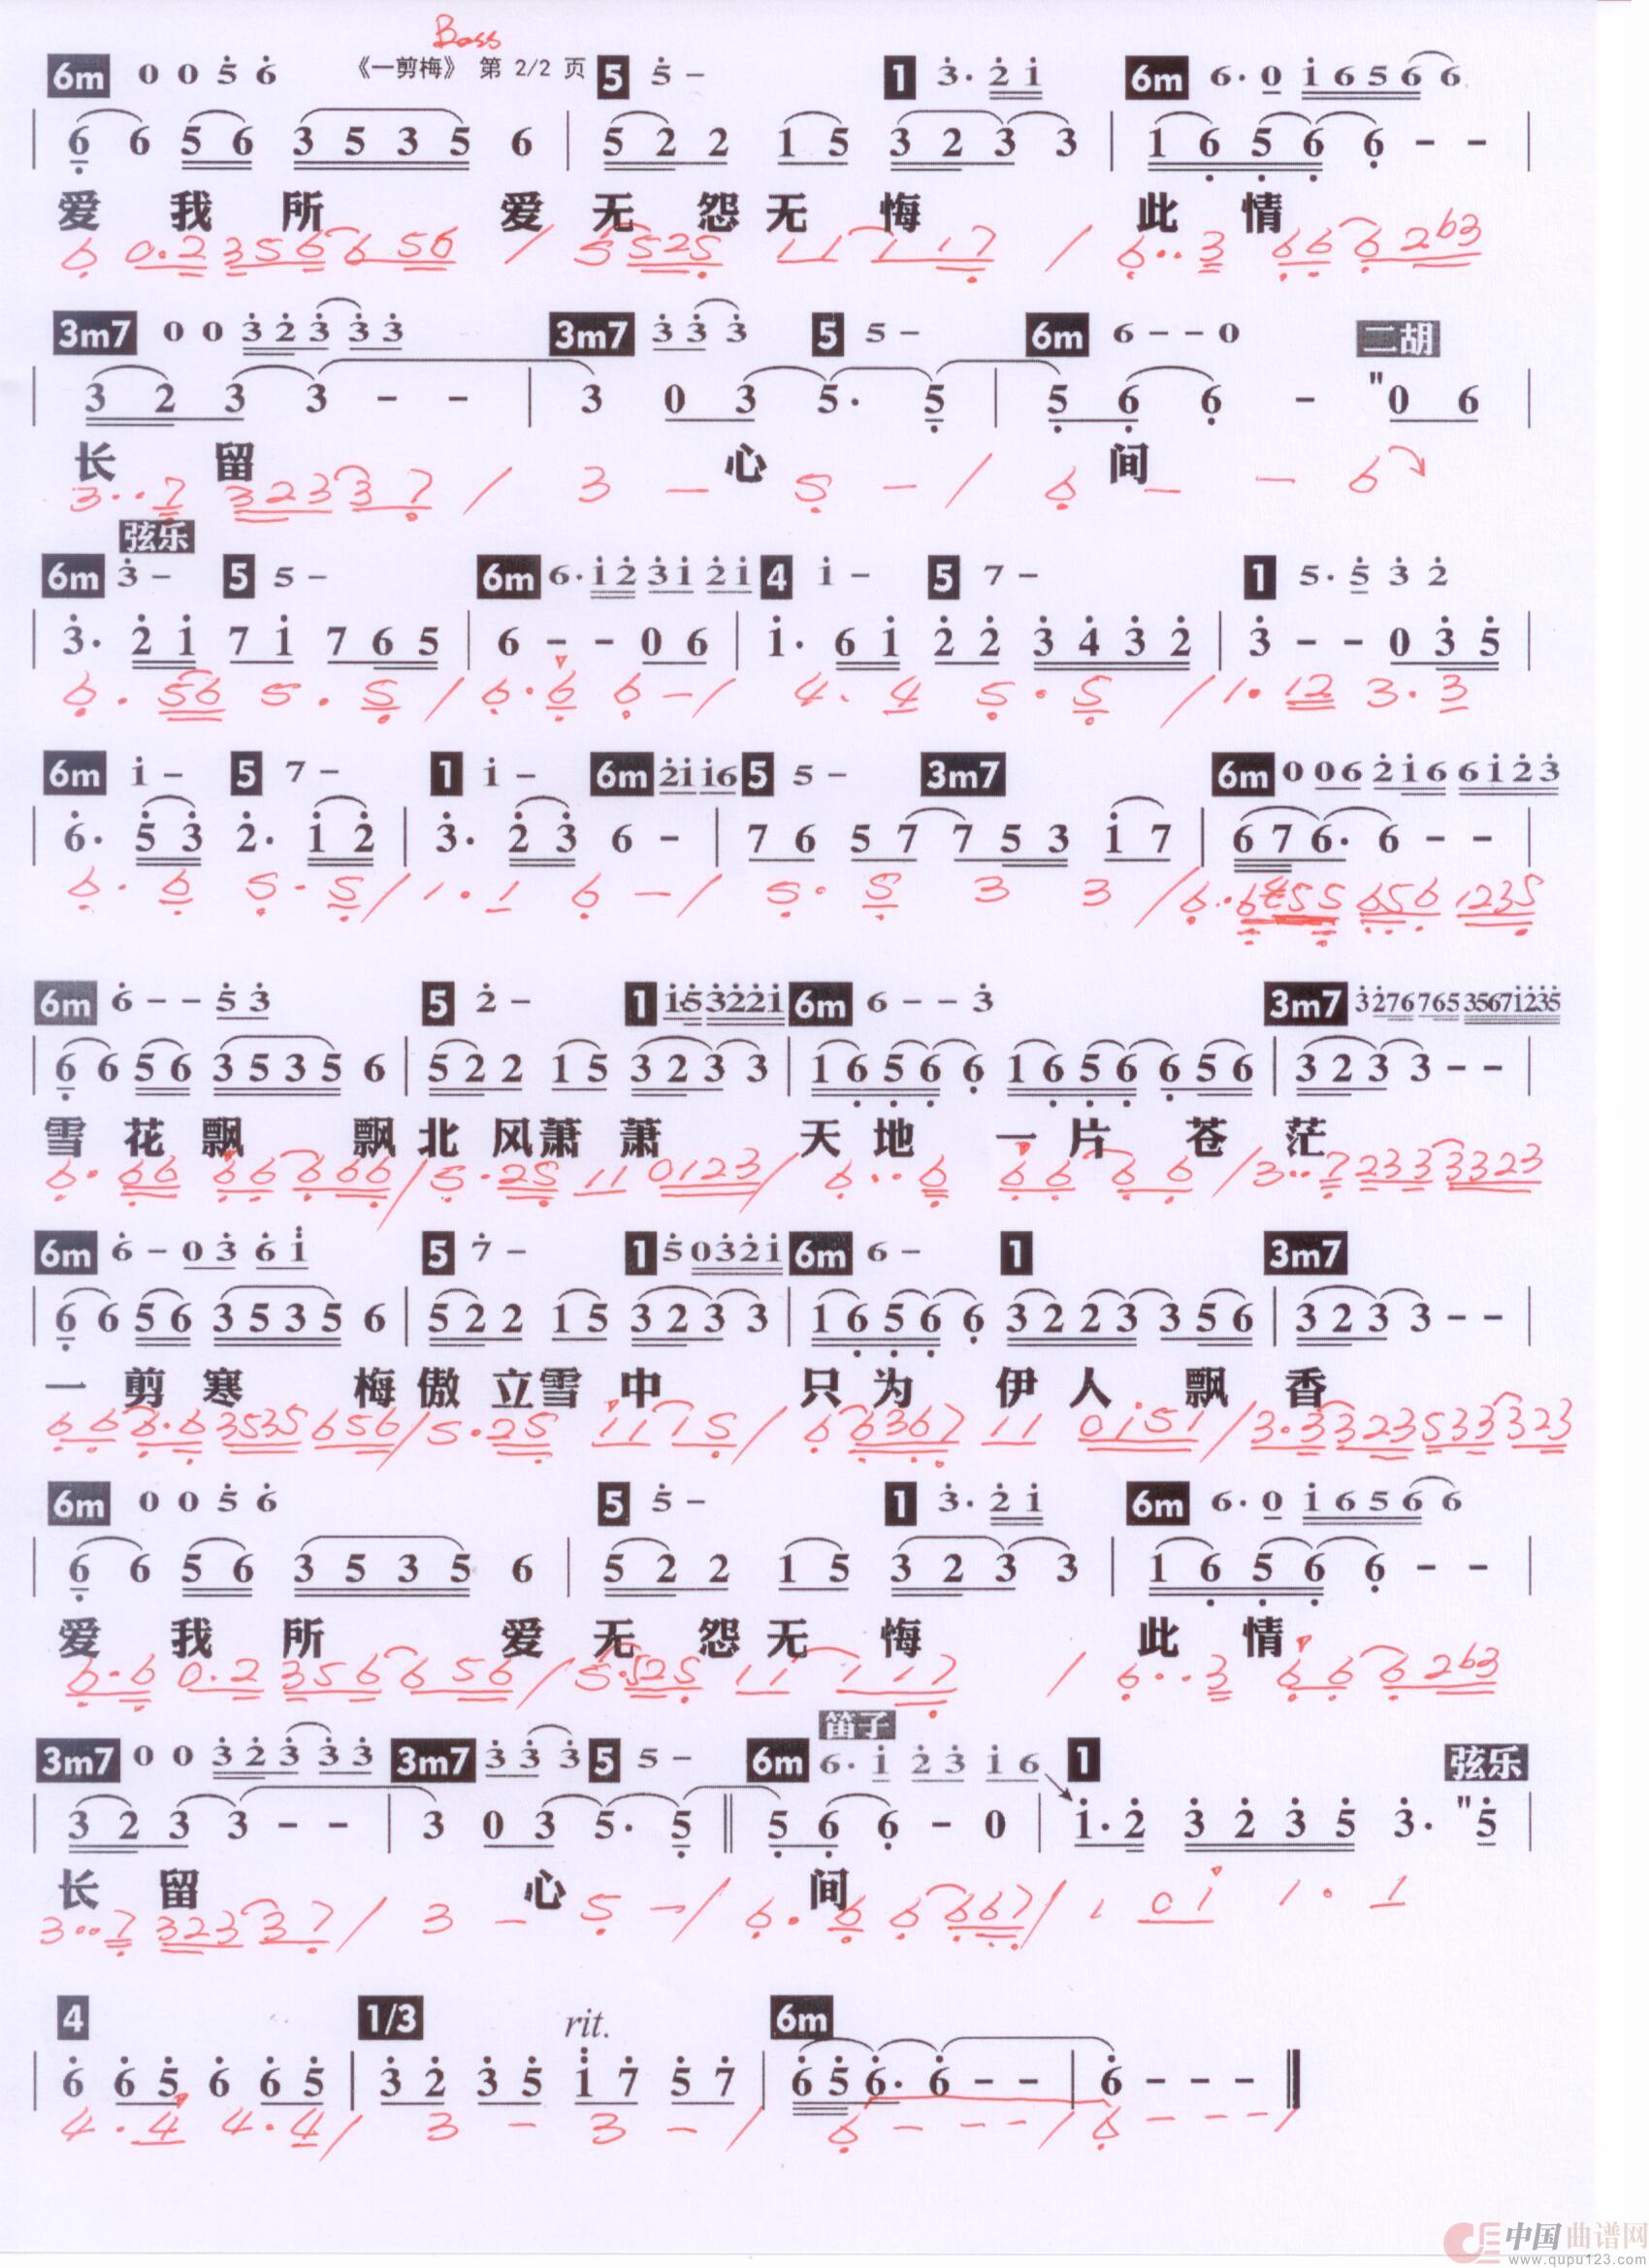 Bass
《一剪梅》 第 2/2 页
6m 0 0 5 6 5 5 - 1 3· 2 1 6m 6· 0 1 6 5 6 6
| 6 6 5 6 3 5 3 5 6 | 5 2 2 1 5 3 2 3 3 | 1 6 5 6 6 - - |
爱 我 所 爱 无 怨 无 悔 此 情
6 0·2 3 5 6 6 5 6 / 5 5 2 5 1 1 1 1 7 / 6·· 3 6 6 6 2 b3
3m7 0 0 3 2 3 3 3 3m7 3 3 3 5 5 - 6m 6 - - 0 二胡
| 3 2 3 3 - - | 3 0 3 5· 5 | 5 6 6 - "0 6 |
长 留 心 间
3·· 7 3 2 3 3 7 / 3 - 5 - / 6 - - 6
弦乐
6m 3 - 5 5 - 6m 6· 1 2 3 1 2 1 4 1 - 5 7 - 1 5· 5 3 2
| 3· 2 1 7 1 7 6 5 | 6 - - 0 6 | 1· 6 1 2 2 3 4 3 2 | 3 - - 0 3 5 |
6· 5 6 5· 5 / 6· 6 6 - / 4· 4 5· 5 / 1· 1 2 3· 3
6m 1 - 5 7 - 1 1 - 6m 2 1 1 6 5 5 - 3m7 6m 0 0 6 2 1 6 6 1 2 3
| 6· 5 3 2· 1 2 | 3· 2 3 6 - | 7 6 5 7 7 5 3 1 7 | 6 7 6· 6 - - |
6· 6 5· 5 / 1· 1 6 - / 5· 5 3 3 / 6·· 6 5 5 6 5 6 1 2 3 5
6m 6 - - 5 3 5 2 - 1 1·5 3 2 2 1 6m 6 - - 3 3m7 3 2 7 6 7 6 5 3 5 6 7 1 2 3 5
| 6 6 5 6 3 5 3 5 6 | 5 2 2 1 5 3 2 3 3 | 1 6 5 6 6 1 6 5 6 6 5 6 | 3 2 3 3 - - |
雪 花 飘 飘 北 风 萧 萧 天 地 一 片 苍 茫
6· 6 6 6 6 6 6 6 / 5· 2 5 1 1 0 1 2 3 / 6·· 6 6 6 6 6 / 3·· 7 2 3 3 3 3 2 3
6m 6 - 0 3 6 1 5 7 - 1 5 0 3 2 1 6m 6 - 1 3m7
| 6 6 5 6 3 5 3 5 6 | 5 2 2 1 5 3 2 3 3 | 1 6 5 6 6 3 2 2 3 3 5 6 | 3 2 3 3 - - |
一 剪 寒 梅 傲 立 雪 中 只 为 伊 人 飘 香
6 6 6· 6 3 5 3 5 6 5 6 / 5· 2 5 1 1 1 5 / 6 6 3 6 7 1 1 0 1 5 1 / 3· 3 3 2 3 5 3 3 3 2 3
6m 0 0 5 6 5 5 - 1 3· 2 1 6m 6· 0 1 6 5 6 6
| 6 6 5 6 3 5 3 5 6 | 5 2 2 1 5 3 2 3 3 | 1 6 5 6 6 - - |
爱 我 所 爱 无 怨 无 悔 此 情
6· 6 0· 2 3 5 6 6 5 6 / 5· 5 2 5 1 1 1 1 7 / 6·· 3 6 6 6 2 b3
笛子
3m7 0 0 3 2 3 3 3 3m7 3 3 3 5 5 - 6m 6· 1 2 3 1 6 1 弦乐
| 3 2 3 3 - - | 3 0 3 5· 5 || 5 6 6 - 0 | 1· 2 3 2 3 5 3· "5 |
长 留 心 间
3·· 7 3 2 3 3 7 / 3 - 5 - / 6· 6 6 6 6 7 / 1 0 1 1· 1
4 1/3 rit. 6m
| 6 6 5 6 6 5 | 3 2 3 5 1 7 5 7 | 6 5 6· 6 - - | 6 - - - ||
4· 4 4· 4 / 3 - 3 - / 6 - - - / 6 - - - /
中国曲谱网
www.qupu123.com